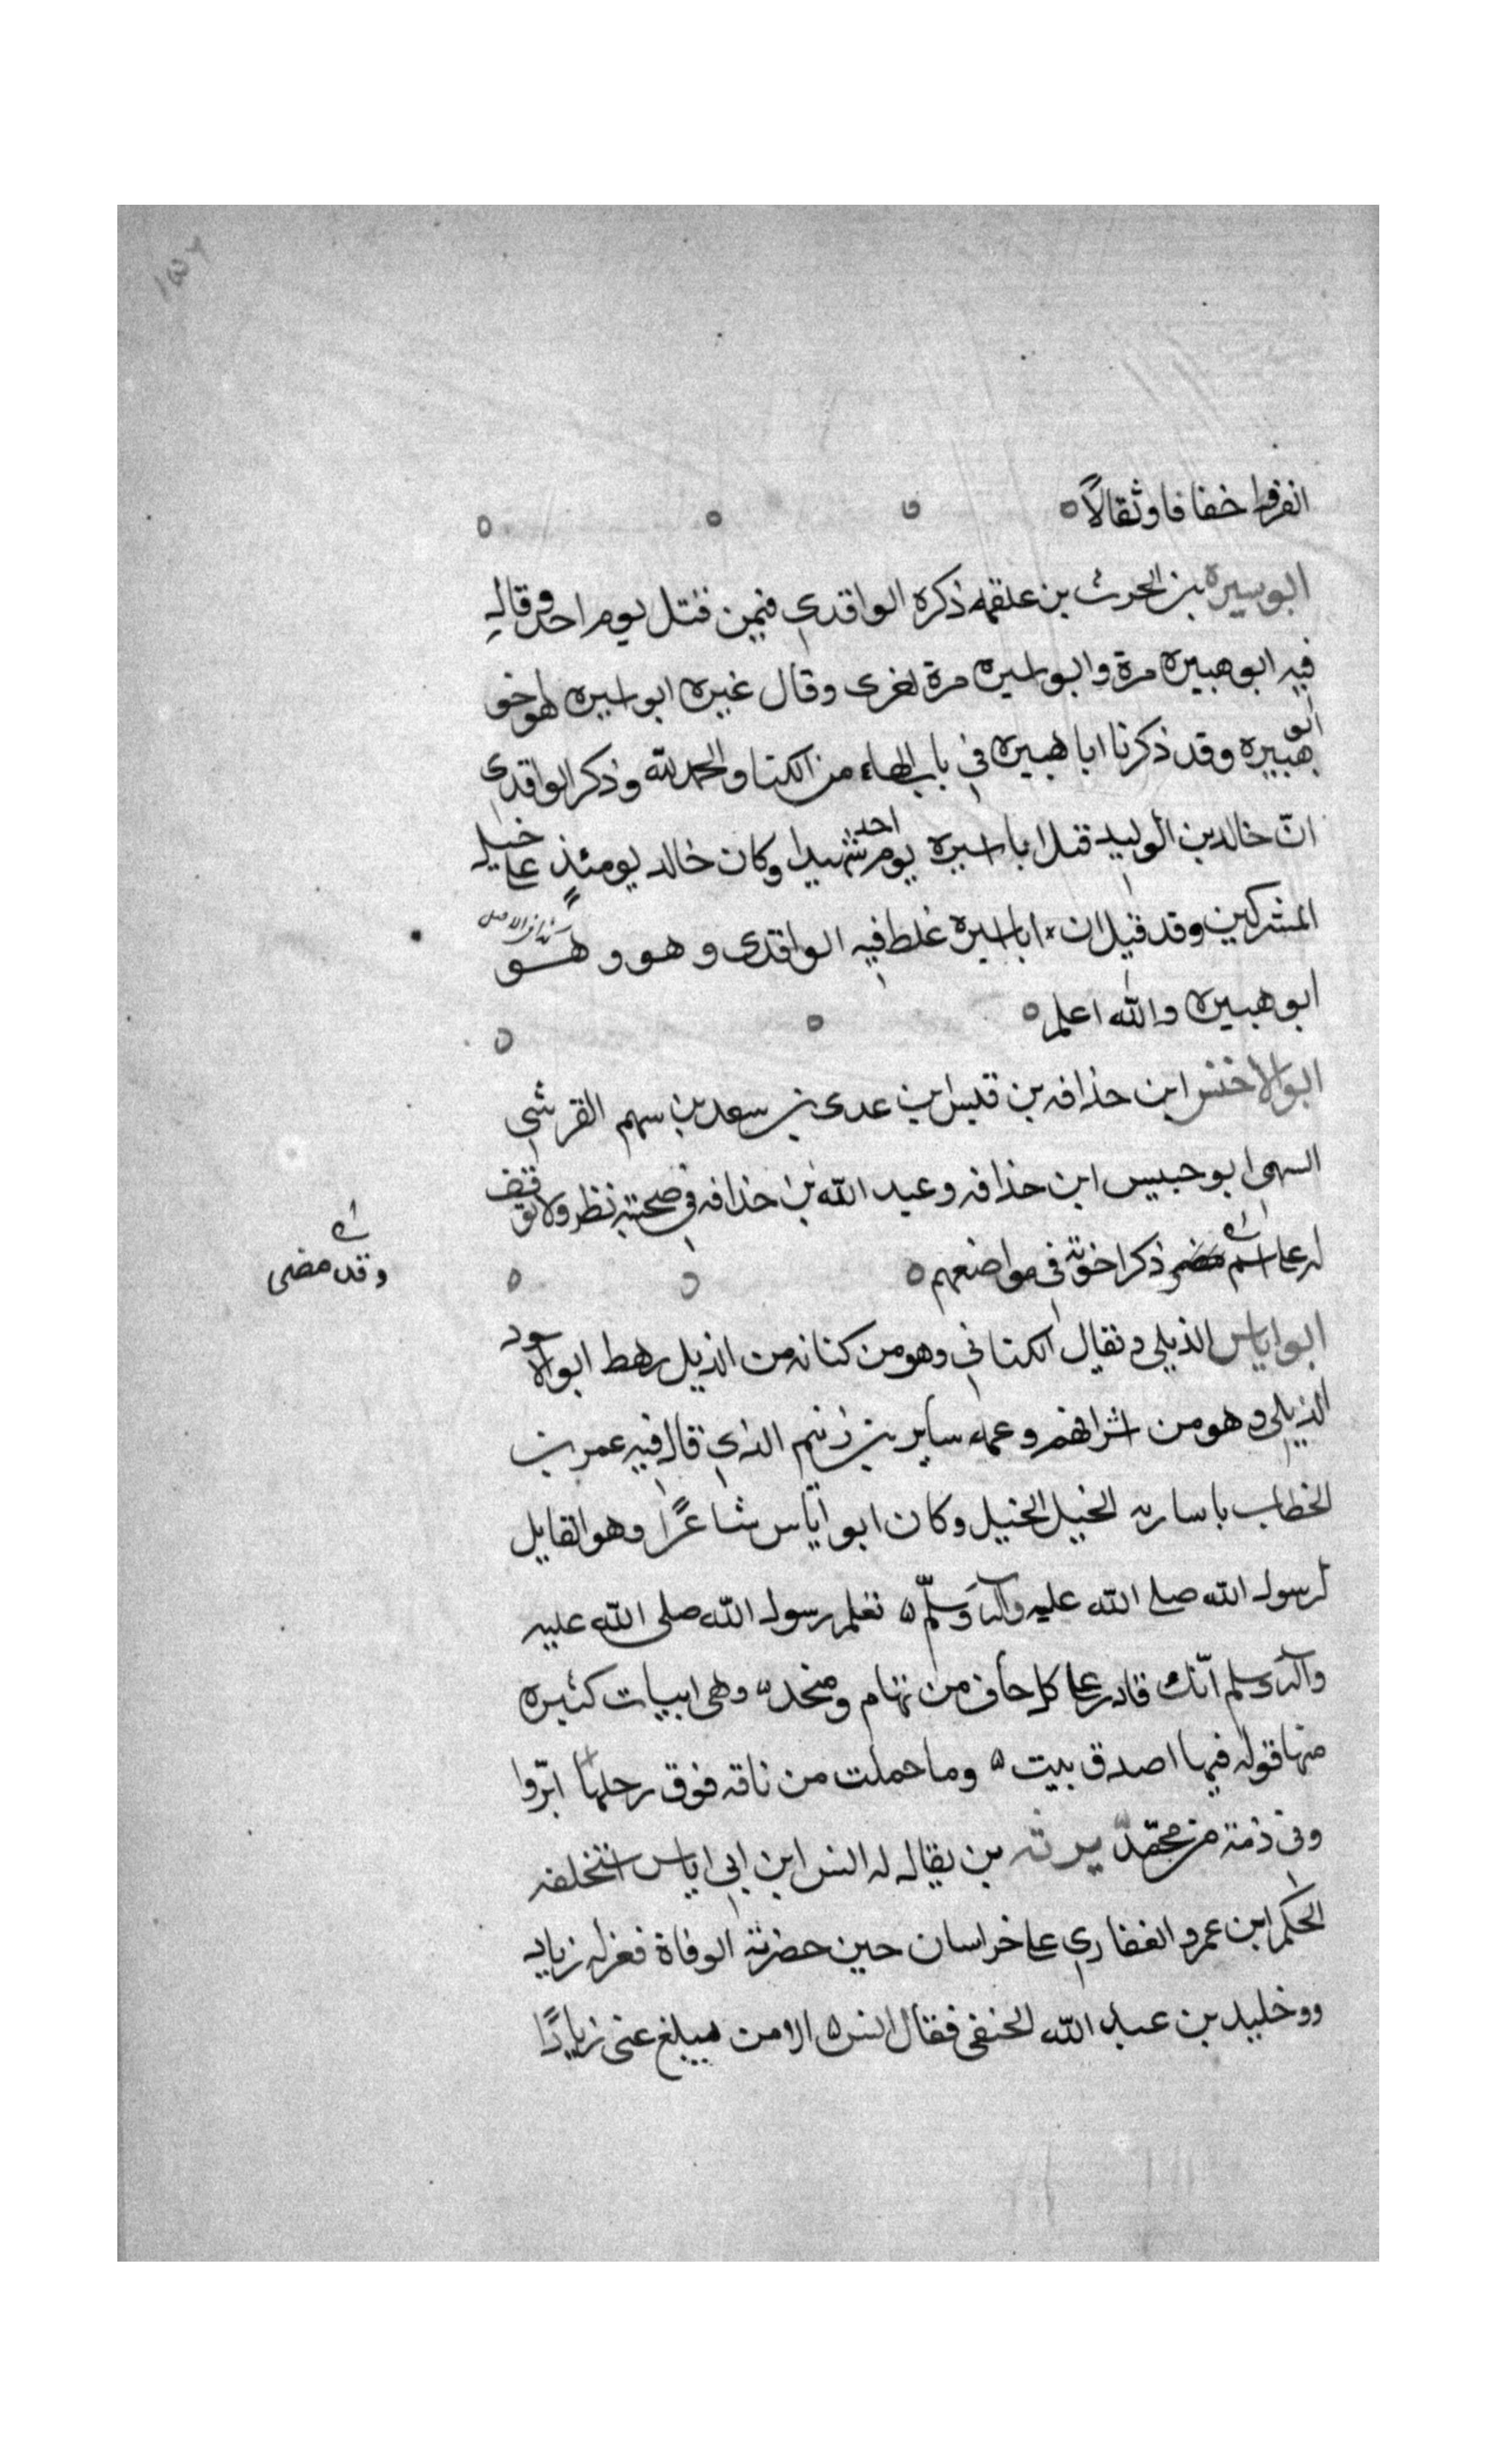 انفروا خفافا وثقالًا
ابو سيره بن الحرث بن علقمه ذكره الواقدي فيمن قتل يوم احد وقال
فيه ابو هبيره مرة وابو اسيره مرة اخرى وقال غيره ابو اسيره هو اخو
ابو هبيره وقد ذكرنا ابا هبيره في باب الهاء من الكتا والحمد لله وذكر الواقدي
انّ خالد بن الوليد قتل ابا سيره يوم احد شهيدا وكان خالد يومئذٍ على خيل
المشركين وقد قيل ان ابا اسيره غلط فيه الواقدي و هو و هو
كذا في الاصل
ابو هبيره والله اعلم
ابو الاخنس ابن حذافه بن قيس ابن عدى بن سعد بن سهم القرشي
السهمى ابو حبيس ابن حذافه وعبد الله بن حذافه في صحبته نظر ولا توقف
له على اسم مضى ذكر اخوته في مواضعهم
وقد مضى
ابو اياس الذيلي ويقال الكناني وهو من كنانه من الذيل رهط ابو الاسود
الذيلي وهو من اشرافهم وعمه ساير بن زنيم الذي قال فيه عمر بن
الخطاب يا ساريه الجبل الجبل وكان ابو اياس شاعرًا وهو القايل
لرسول الله صلى الله عليه وآله وسلّم تعلم رسول الله صلى الله عليه
وآله وسلم انّك قادر على كل حاف من تهام ومنجد وهى ابيات كثيره
منها قوله فيها اصدق بيت وما حملت من ناقه فوق رحلها ابرّوا
وفى ذمة من محمّد بن يقال له انس ابن ابي اياس استخلفه
الحكم ابن عمرو الغفاري على خراسان حين حضرته الوفاة فعزله زياد
وو خليد بن عبد الله الحنفى فقال انس الا من مبلغ عنى زيادًا